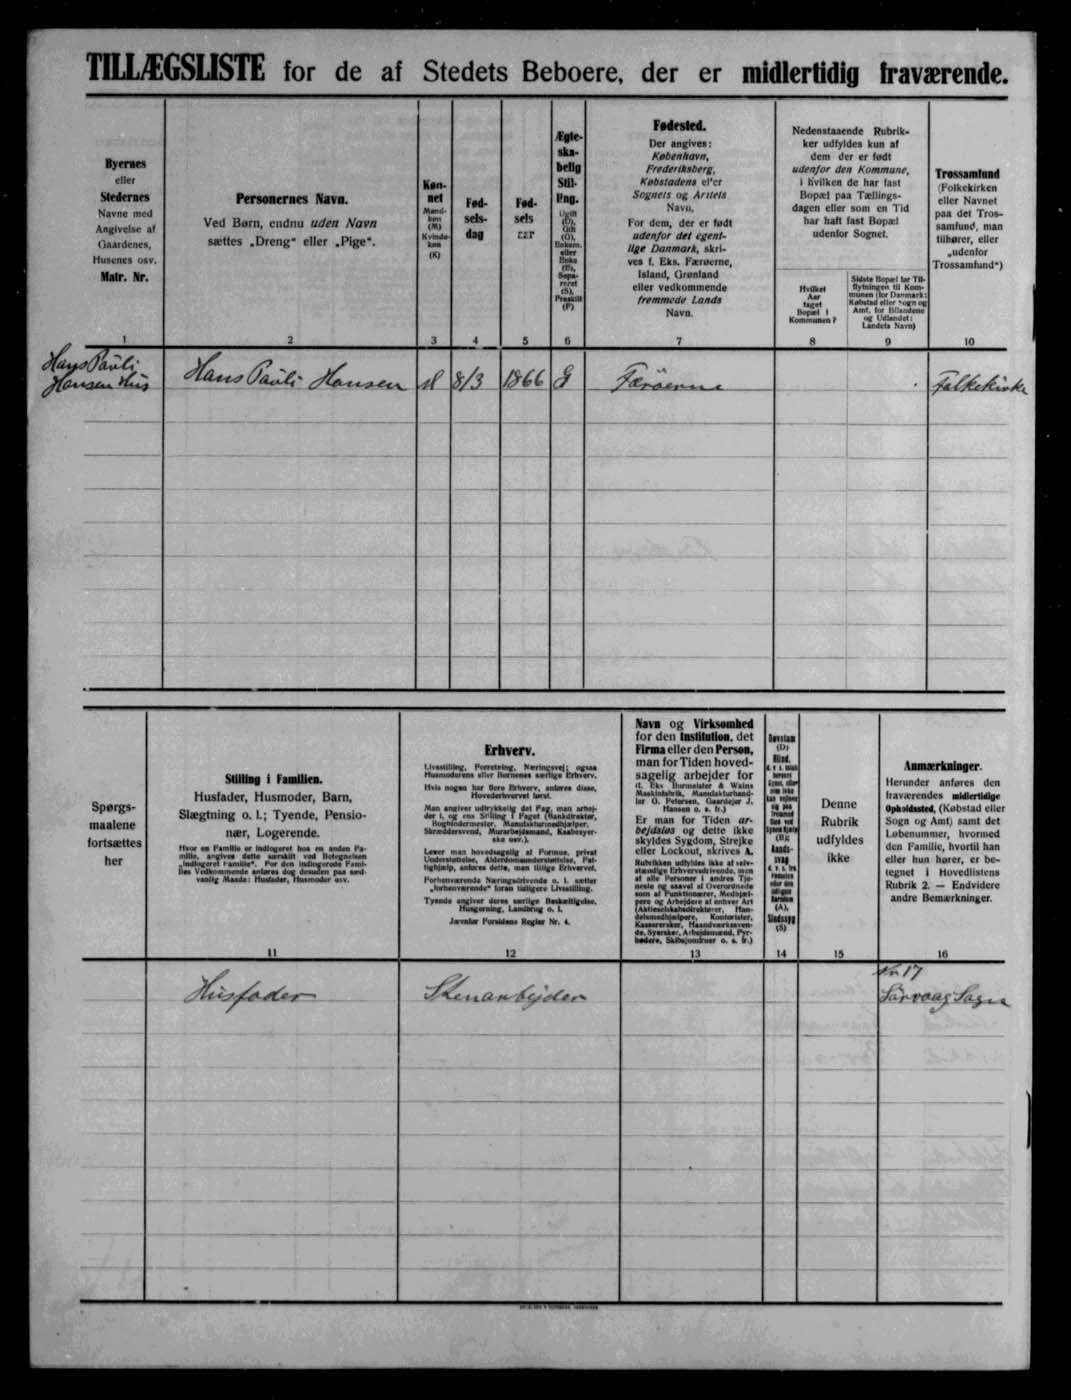 TILLÆGSLISTE for de af Stedets Beboere, der er midlertidig fraværende.
Byernes
eller
Stedernes
Navne med
Angivelse af
Gaardenes,
Husenes osv.
Matr. Nr.
Personernes Navn.
Ved Børn, endnu uden Navn
sættes „Dreng“ eller „Pige“.
Køn-
net
Mand-
køn
(M)
Kvinde-
køn
(K)
Fød-
sels-
dag
Fød-
sels
aar
Ægte-
ska-
belig
Stil-
ling.
Ugift
(U),
Gift
(G),
Enkem.
eller
Enke
(E),
Sepa-
reret
(S),
Fraskilt
(F)
Fødested.
Der angives:
København,
Frederiksberg,
Købstadens el'er
Sognets og Amtets
Navn.
For dem, der er født
udenfor det egent-
lige Danmark, skri-
ves f. Eks. Færøerne,
Island, Grønland
eller vedkommende
fremmede Lands
Navn.
Nedenstaaende Rubrik-
ker udfyldes kun af
dem der er født
udenfor den Kommune,
i hvilken de har fast
Bopæl paa Tællings-
dagen eller som en Tid
har haft fast Bopæl
udenfor Sognet.
Hvilket
Aar
taget
Bopæl i
Kommunen?
Sidste Bopæl før Til-
flytningen til Kom-
munen (for Danmark:
Købstad eller Sogn og
Amt, for Bilandene
og Udlandet:
Landets Navn)
Trossamfund
(Folkekirken
eller Navnet
paa det Tros-
samfund, man
tilhører, eller
„udenfor
Trossamfund“)
1 2 3 4 5 6 7 8 9 10
Hans Pauli
Hansen Hus
Hans Pauli Hansen M 8/3 1866 G Færöerne Folkekirke
Spørgs-
maalene
fortsættes
her
Stilling i Familien.
Husfader, Husmoder, Barn,
Slægtning o. l.; Tyende, Pensio-
nær, Logerende.
Hvor en Familie er indlogeret hos en anden Fa-
milie, angives dette særskilt ved Betegnelsen
„indlogeret Familie“. For den indlogerede Fami-
lies Vedkommende anføres dog desuden paa sæd-
vanlig Maade: Husfader, Husmoder osv.
Erhverv.
Livsstilling, Forretning, Næringsvej; ogsaa
Husmoderens eller Børnenes særlige Erhverv.
Hvis nogen har flere Erhverv, anføres disse,
Hovederhvervet først.
Man angiver udtrykkelig det Fag, man arbej-
der i, og ens Stilling i Faget (Bankdirektør,
Bogbindermester, Manufakturmedhjælper,
Skræddersvend, Murarbejdsmand, Kaabesyer-
ske osv.).
Lever man hovedsagelig af Formue, privat
Understøttelse, Alderdomsunderstøttelse, Fat-
tighjælp, anføres dette, man iltlige Erhvervet.
Forhenværende Næringsdrivende o. l. sætter
„forhenværende“ foran tidligere Livsstilling.
Tyende angiver deres særlige Beskæftigelse,
Husgerning, Landbrug o. l.
Jævnfør Forsidens Regler Nr. 4.
Navn og Virksomhed
for den Institution, det
Firma eller den Person,
man for Tiden hoved-
sagelig arbejder for
(f. Eks Burmeister & Wains
Maskinfabrik, Manufakturhand-
ler O. Petersen, Gaardejer J.
Hansen o. s. fr.)
Er man for Tiden ar-
bejdsløs og dette ikke
skyldes Sygdom, Strejke
eller Lockout, skrives A.
Rubrikken udfyldes ikke af selv-
stændige Erhvervsdrivende, men
af alle Personer i andres Tje-
neste og saavel af Overordnede
som af Funktionærer, Medhjæl-
pere og Arbejdere af enhver Art
(Aktieselskabsdirektører, Han-
delsmedhjælpere, Kontorister,
Kasserersker, Haandværkssven-
de, Syersker, Arbejdsmænd, Fyr-
bødere, Skibsjomfruer o. s. fr.)
Døvstum
(D)
Blind,
(B);
Aands-
svag
(A),
Sindssyg
(S)
Denne
Rubrik
udfyldes
ikke
Anmærkninger.
Herunder anføres den
fraværendes midlertidige
Opholdssted, (Købstad eller
Sogn og Amt) samt det
Løbenummer, hvormed
den Familie, hvortil han
eller hun hører, er be-
tegnet i Hovedlistens
Rubrik 2. — Endvidere
andre Bemærkninger.
11 12 13 14 15 16
Nr. 17
Husfader Stenarbejder Sörvaag Sogn